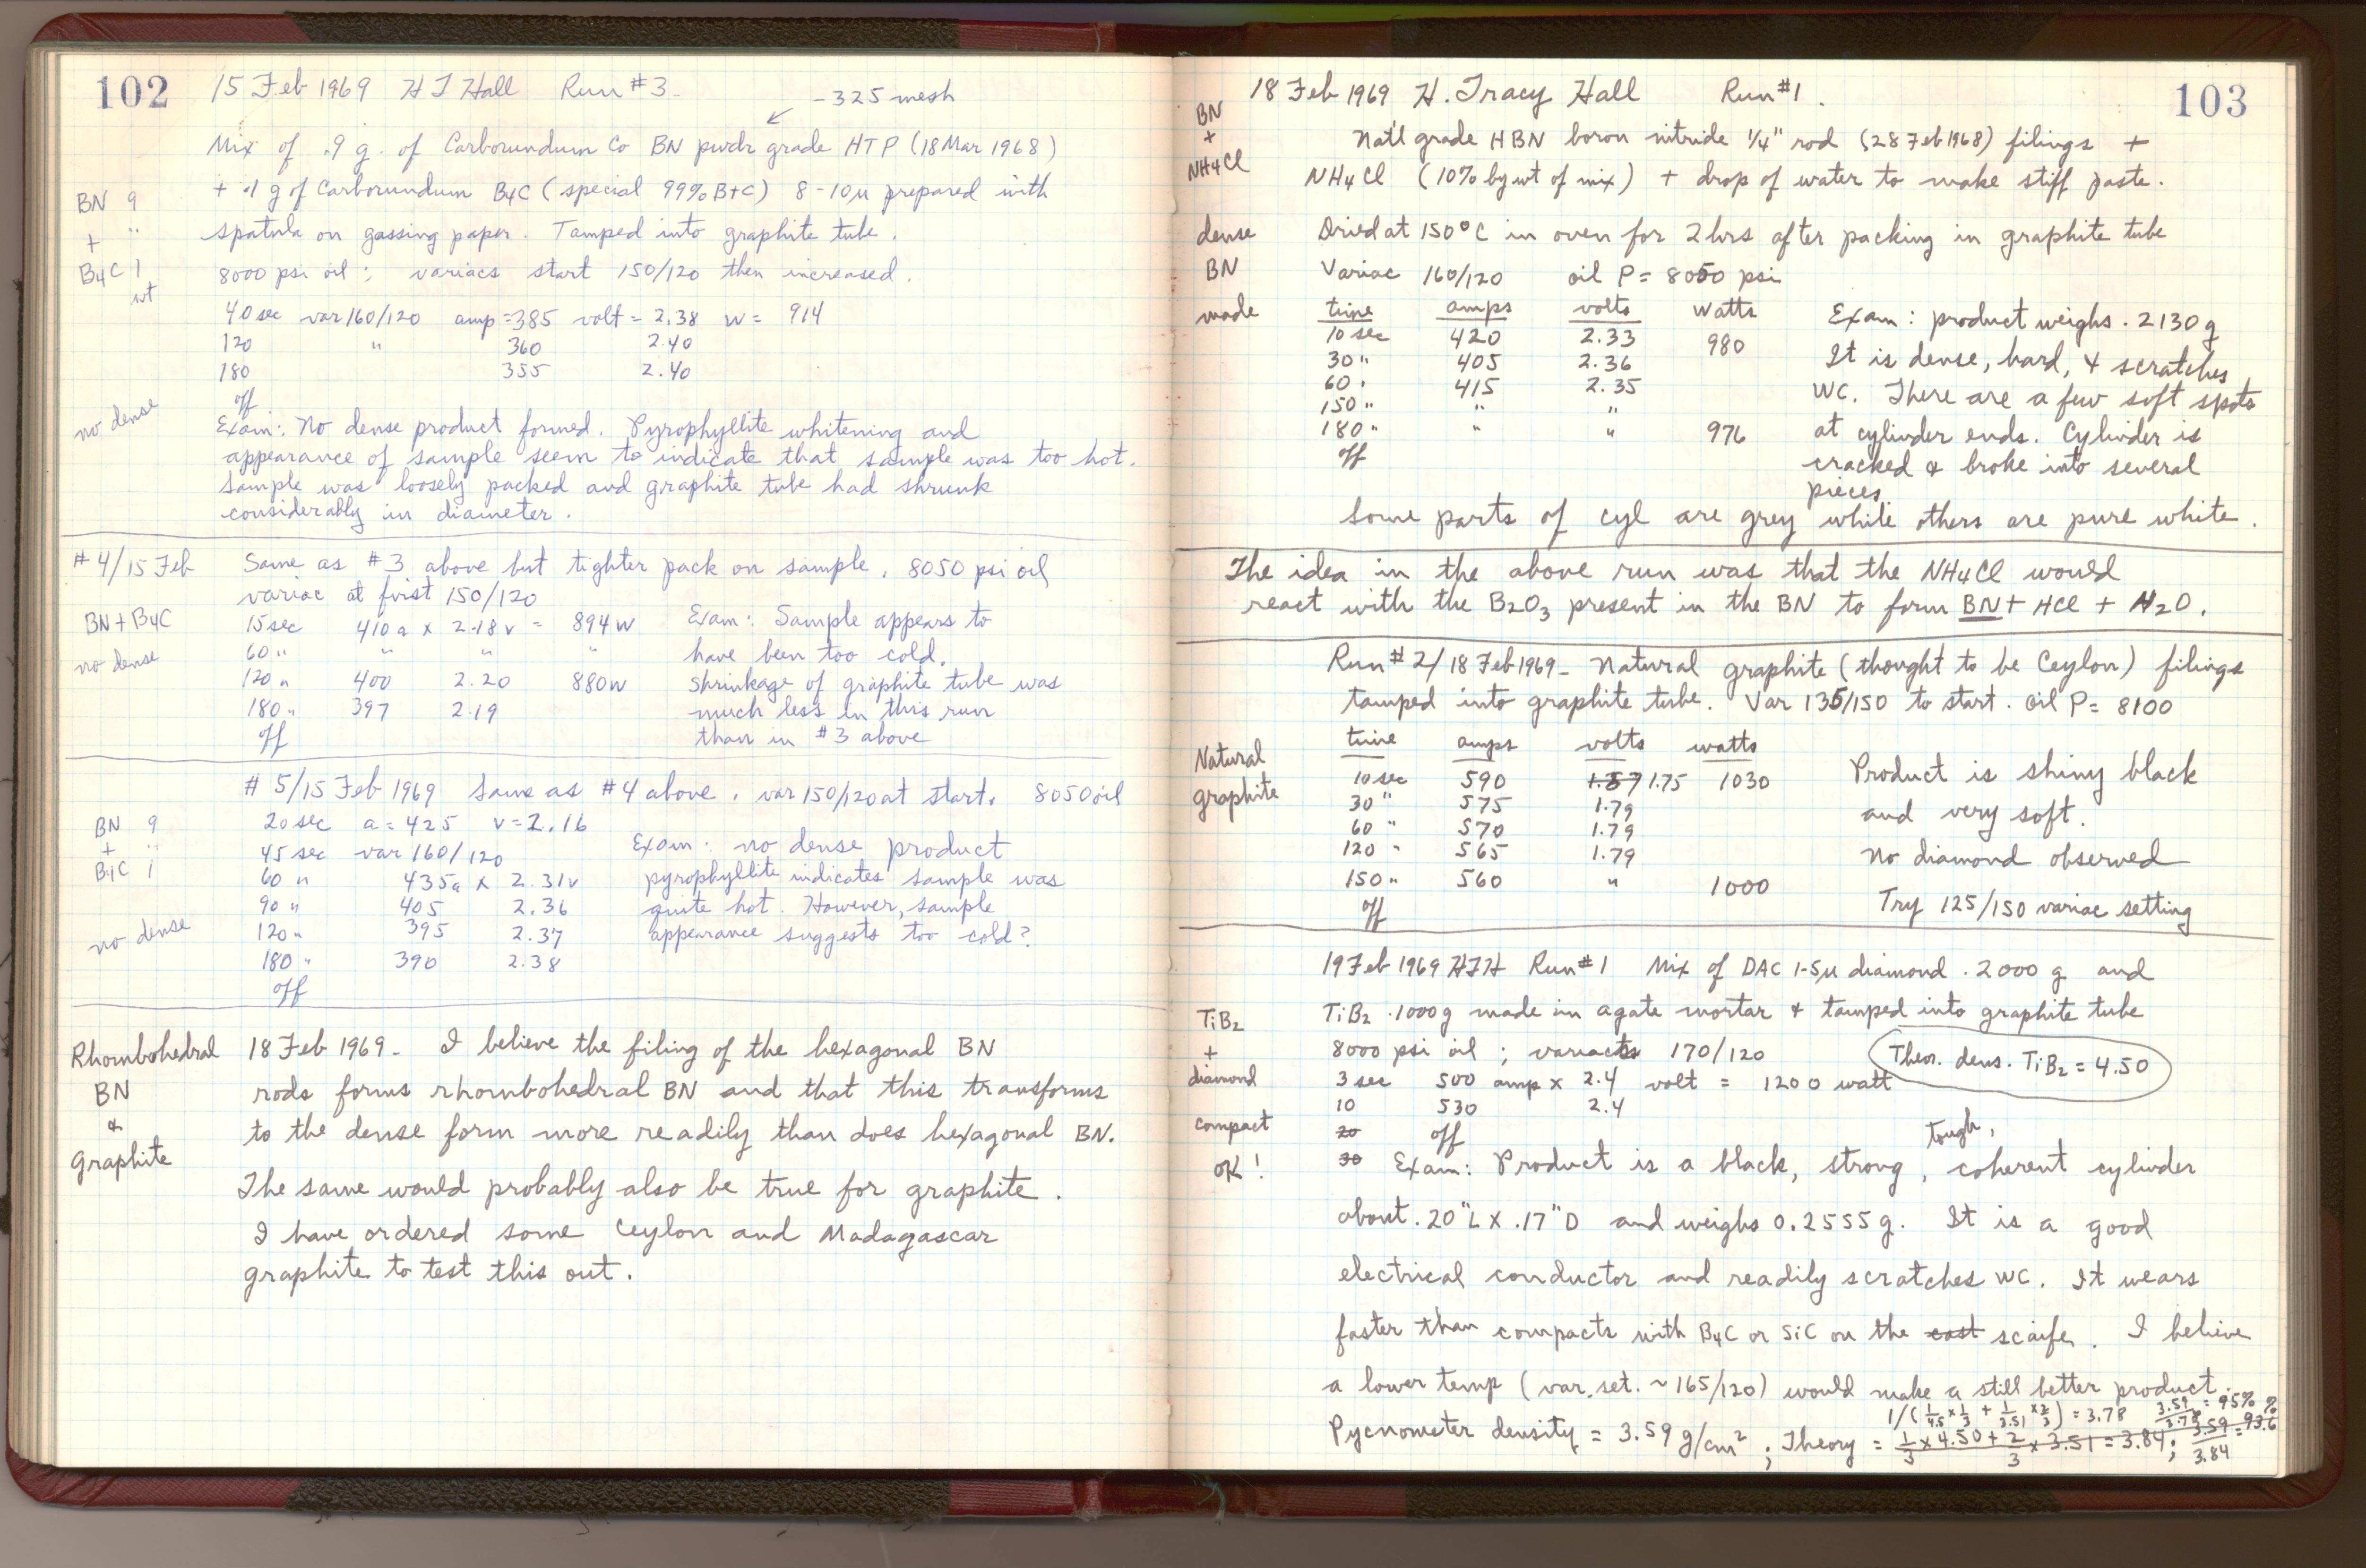 102
15 Feb 1969 H T Hall Run #3
-325 mesh
Mix of .9 g. of Carborundum Co BN pwdr grade HTP (18 Mar 1968)
+ .1 g of Carborundum B4C (special 99% B+C) 8-10μ prepared with
spatula on glassing paper. Tamped into graphite tube.
BN 9
+ "
B4C 1
wt
8000 psi oil; variacs start 150/120 then increased.
40 sec var 160/120 amp = 385 volt = 2.38 W = 914
120 " 360 2.40
180 355 2.40
off
no dense
Exam: No dense product formed. Pyrophyllite whitening and
appearance of sample seem to indicate that sample was too hot.
Sample was loosely packed and graphite tube had shrunk
considerably in diameter.
#4/15 Feb Same as #3 above but tighter pack on sample, 8050 psi oil
variac at first 150/120
BN + B4C
no dense
15 sec 410 a x 2.18 v = 894 w
60 " " " "
120 " 400 2.20 880 w
180 " 397 2.19
off
Exam: Sample appears to
have been too cold.
Shrinkage of graphite tube was
much less in this run
than in #3 above
#5/15 Feb 1969 Same as #4 above. var 150/120 at start. 8050 oil
BN 9
+ "
B4C 1
no dense
20 sec a = 425 v = 2.16
45 sec var 160/120
60 " 435a x 2.31v
90 " 405 2.36
120 " 395 2.37
180 " 390 2.38
off
Exam: no dense product
pyrophyllite indicates sample was
quite hot. However, sample
appearance suggests too cold?
Rhombohedral
BN
&
Graphite
18 Feb 1969 - I believe the filing of the hexagonal BN
rods forms rhombohedral BN and that this transforms
to the dense form more readily than does hexagonal BN.
The same would probably also be true for graphite.
I have ordered some Ceylon and Madagascar
graphite to test this out.
103
18 Feb 1969 H. Tracy Hall Run #1.
BN
+
NH4Cl
dense
BN
made
Nat'l grade HBN boron nitride 1/4" rod (28 Feb 1968) filings +
NH4Cl (10% by wt of mix) + drop of water to make stiff paste.
Dried at 150°C in oven for 2 hrs after packing in graphite tube
Variac 160/120 oil P = 8050 psi
time amps volts watts
10 sec 420 2.33 980
30 " 405 2.36
60 " 415 2.35
150 " " "
180 " " " 976
off
Exam: product weighs .2130 g
It is dense, hard, & scratches
WC. There are a few soft spots
at cylinder ends. Cylinder is
cracked & broke into several
pieces.
Some parts of cyl are grey while others are pure white.
The idea in the above run was that the NH4Cl would
react with the B2O3 present in the BN to form BN + HCl + H2O.
Run #2/18 Feb 1969 - Natural graphite (thought to be Ceylon) filings
tamped into graphite tube. Var 135/150 to start. oil P = 8100
Natural
graphite
time amps volts watts
10 sec 590 1.57 1.75 1030
30 " 575 1.79
60 " 570 1.79
120 " 565 1.79
150 " 560 " 1000
off
Product is shiny black
and very soft.
No diamond observed
Try 125/150 variac setting
19 Feb 1969 HTH Run #1 Mix of DAC 1-5μ diamond .2000 g and
TiB2 .1000g made in agate mortar & tamped into graphite tube
TiB2
+
diamond
compact
OK!
8000 psi oil; variacs 170/120
Theor. dens. TiB2 = 4.50
3 sec 500 amp x 2.4 volt = 1200 watt
10 530 2.4
20 off
30 Exam: Product is a black, strong, tough, coherent cylinder
about .20"L x .17"D and weighs 0.2555 g. It is a good
electrical conductor and readily scratches WC. It wears
faster than compacts with B4C or SiC on the cast scaife. I believe
a lower temp (var. set. ~165/120) would make a still better product.
1/(1/4.5 x 1/3 + 1/3.51 x 2/3) = 3.78 3.59/3.78 = 95%
Pycnometer density = 3.59 g/cm2; Theory = 1/3 x 4.50 + 2/3 x 3.51 = 3.84; 3.59/3.84 = 93.6 %